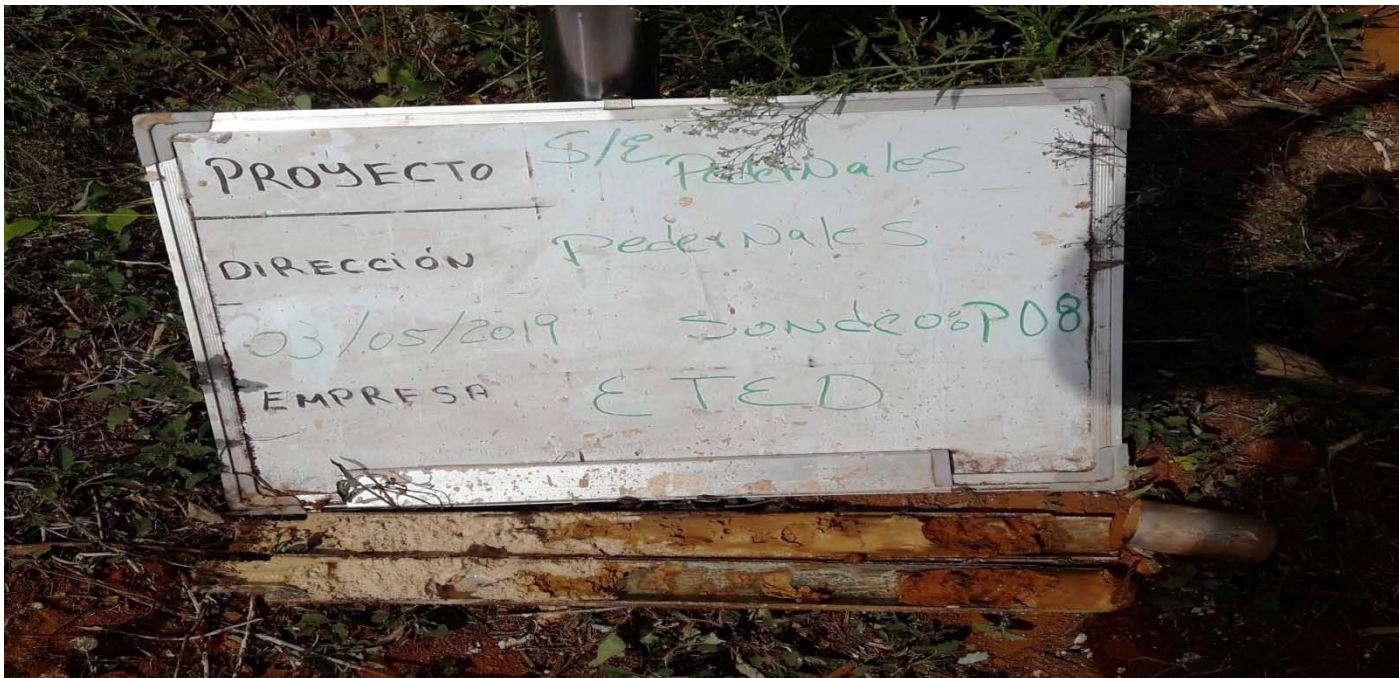 PROYECTO S/E PederNales
DIRECCIÓN PederNales
03/05/2019 SONdeo: P08
EMPRESA ETED